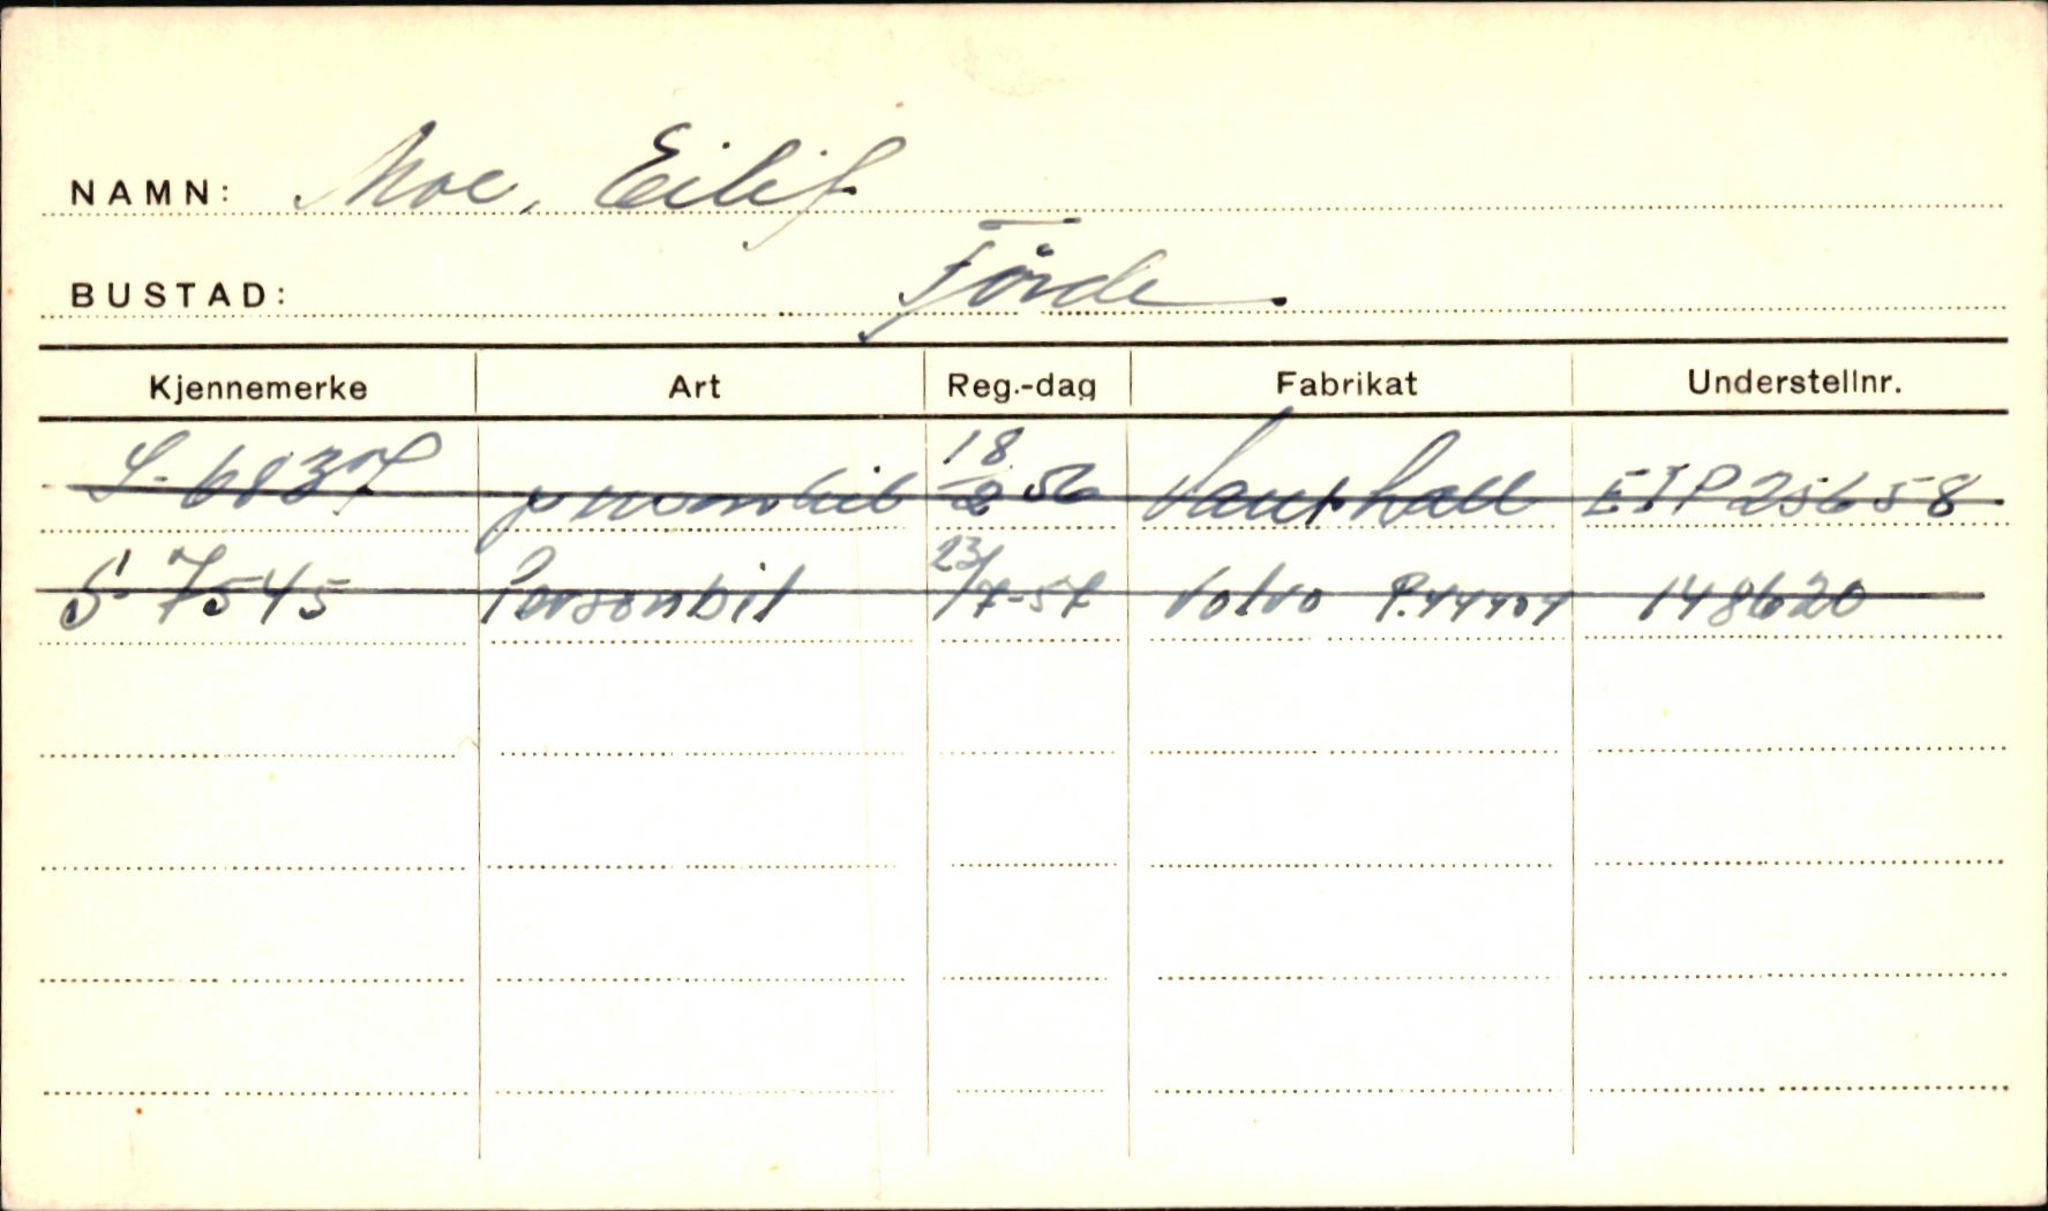 NAMN: Moe, Eilif
BUSTAD: Förde
Kjennemerke Art Reg.-dag Fabrikat Understellnr.
S-6837 personbil 18/2 56 Vauxhall EIP 25658
S-7545 Personbil 23/7-57 Volvo P.44404 148620